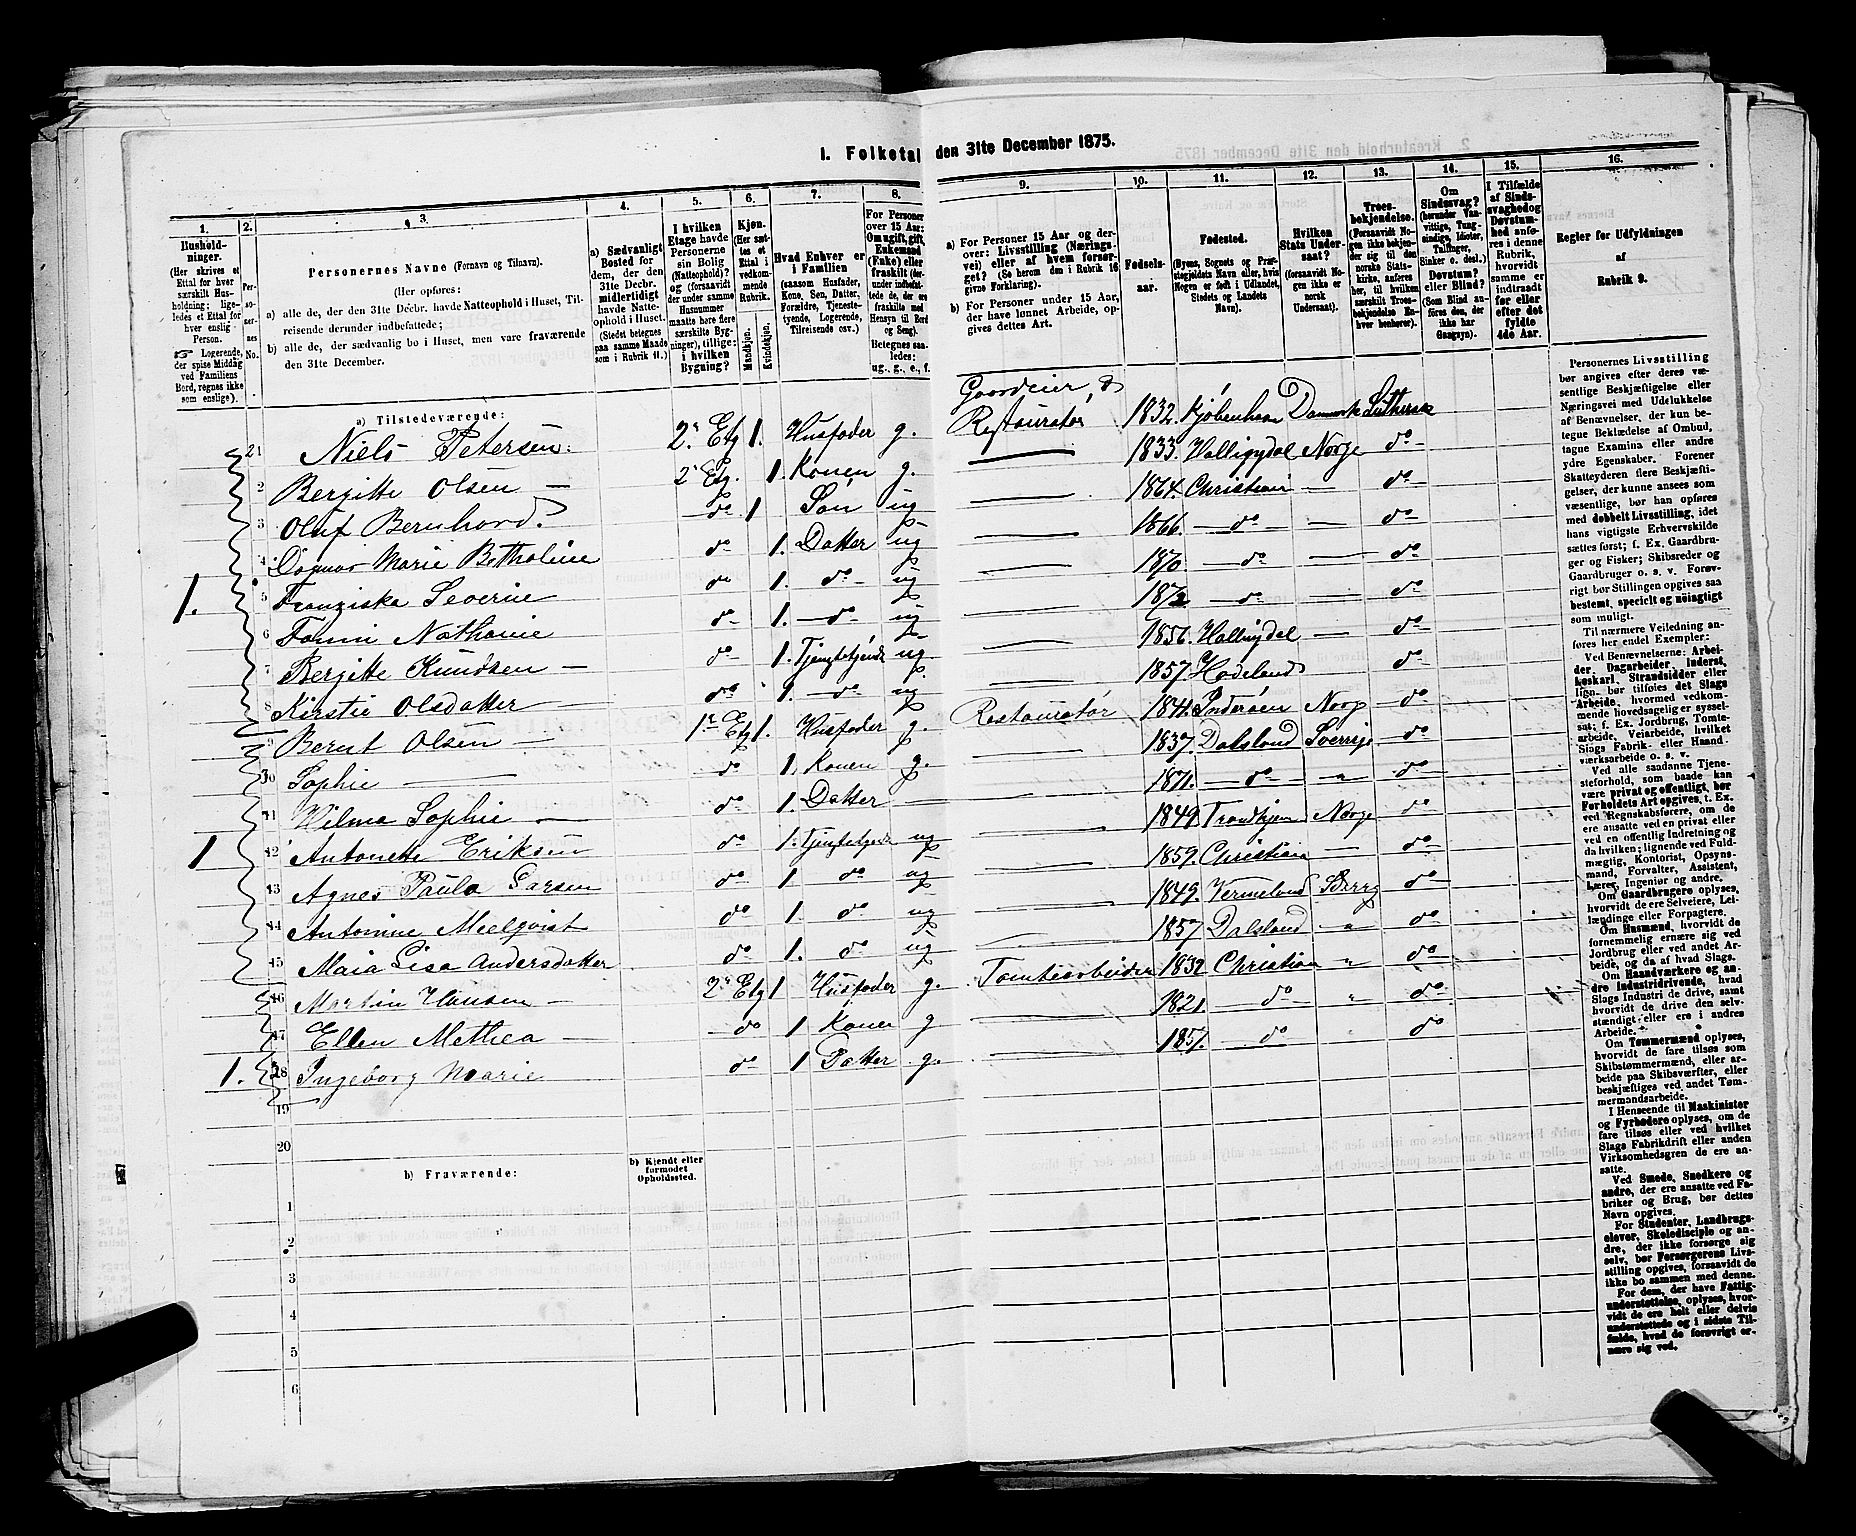 I. Folketal den 31te December 1875.
1. 2. 3. 4. 5. 6. 7. 8. 9. 10. 11. 12. 13. 14. 15. 16.
Husholdninger.
(Her skrives et
Ettal for hver
særskilt Husholdning; ligeledes
et Ettal for
hver enslig
Person.
☞ Logerende,
der spise Middag
ved Familiens
Bord, regnes ikke
som enslige).
Personernes No.
Personernes Navne (Fornavn og Tilnavn).
(Her opføres:
a) alle de, der den 31te Decbr. havde Natteophold i Huset, Tilreisende derunder indbefattede;
b) alle de, der sædvanlig bo i Huset, men vare fraværende
den 31te December.
a) Sædvanligt
Bosted for
dem, der den
31te Decbr.
midlertidigt
havde Natteophold
i Huset.
(Stedet betegnes
paa samme Maade
som i Rubrik 11.)
I hvilken
Etage havde
Personerne
sin Bolig
(Natteophold)?
og (forsaavidt
der under samme
Husnummer
maatte høre flere
særskilte Bygninger),
tillige:
i hvilken
Bygning?
Kjøn.
(Her sættes
et
Ettal i
vedkommende
Rubrik.
Mandkjøn.
Kvindekjøn.
Hvad Enhver er
i Familien
(saasom Husfader,
Kone, Søn, Datter,
Forældre, Tjenestetyende,
Logerende,
Tilreisende osv.)
For Personer
over 15 Aar:
Om ugift, gift,
Enkemand
(Enke) eller
fraskilt
Betegnes saaledes:
ug., g., e., f.
a) For Personer 15 Aar og derover:
Livsstilling (Næringsvei)
eller af hvem forsørget?
(Se herom den i Rubrik 16
givne Forklaring).
b) For Personer under 15 Aar,
der have lønnet Arbeide, opgives
dettes Art.
Fødselsaar.
Fødested.
(Byens, Sognets og Præstegjeldets
Navn eller, hvis
Nogen er født i Udlandet,
Stedets og Landets
Navn).
Hvilken
Stats Undersaat?
(forsaavidt Nogen
ikke er
norsk
Undersaat).
Troesbekjendelse.
(Forsaavidt Nogen
ikke bekjender
sig til den
norske Statskirke,
anføres
her, til hvilken
særskilt Troesbekjendelse
Enhver
henhører).
Om
Sindssvag?
(herunder Vanvittige,
Tungsindige,
Idioter,
Tullinger,
Sinker o. desl.)
Døvstum?
eller Blind?
(Som Blind anføres
den, der
ikke har
Gangsyn).
I Tilfælde
af Sindssvaghed
og
Døvstumhed
anføres
i denne
Rubrik,
hvorvidt
samme er
indtraadt
før eller
efter det
fyldte
4de Aar.
Regler for Udfyldningen
af
Rubrik 9.
a) Tilstedeværende:
1 Niels Petersen 2. Etg 1. Husfader g. Gaardeier & Restauratør 1832. Kjøbenhavn Danmark Lutherske
2 Bergitte Olsen — 2 Etg. 1. Konen g. — 1833. Halligydal Norge do
3 Oluf Bernhard do 1 Søn ug — 1864. Christiani — do
4 Dagmar Marie Bethaline do 1. Datter ug — 1866. do — do
1. 5 Franziska Severine do 1. do ug — 1870. do — do
6 Fanni Nathanie do 1. do ug — 1872 do — do
7 Bergitte Knudsen — do 1. Tjenstetjende ug — 1856. Hallindal — do
8 Kirstie Olsdatter do 1. do ug — 1857. Hadeland do
9 Bernt Olsen — 1e Etg 1. Husfader g. Restauratør 1841. Inderøen Norge do
10 Sophie — do 1. Konen g. — 1837. Dalsland Sverrige do
11 Wilma Sophie — do 1. Datter — — 1871. do " do
1 12 Antonette Eriksen do 1. Tjenstetjende ug — 1849. Trondhjem Norge do
13 Agnes Paula Larsen do 1 do ug — 1859. Christian — do
14 Antonine Meelqvist do 1. do ug — 1849. Vermeland Sverig do
15 Maia Lisa Andersdatter do 1. do ug — 1857 Dalsland " do
16 Martin Hansen — 2. Etg 1 Husfader g. Tomtearbeider 1832. Christian " do
17 Ellen Mathea — do 1 Konen g — 1821. do " do
1. 18 Ingeborg Marie do 1 Datter g. — 1857. do " do
19
20
b) Fraværende:
b) Kjendt eller
formodet
Opholdssted.
1
2
3
4
5
6
Personernes Livsstilling
bør angives efter deres væsentlige
Beskjæftigelse eller
Næringsvei med Udelukkelse
af Benævnelser, der kun betegne
Beklædelse af Ombud,
tagne Examina eller andre
ydre Egenskaber. Forener
Skatteyderen flere Beskjæftigelser,
der kunne ansees som
væsentlige, bør han opføres
med dobbelt Livsstilling, idet
hans vigtigste Erhvervskilde
sættes først; f. Ex. Gaardbruger
og Fisker; Skibsreder og
Gaardbruger o. s. v. Forøvrigt
bør Stillingen opgives saa
bestemt, specielt og nøiagtigt
som muligt.
Til nærmere Veiledning anføres
her endel Exempler:
Ved Benævnelserne: Arbeider,
Dagarbeider, Inderst,
Løskarl, Strandsidder eller
lign. bør tilføies det Slags
Arbeide, hvormed vedkommende
hovedsagelig er sysselsat;
f. Ex. Jordbrug, Tomtearbeide,
Veiarbeide, hvilket
Slags Fabrik- eller Haandværksarbeide
o. s. v.
Ved alle saadanne Tjenesteforhold,
som baade kan
være privat og offentligt, bør
Forholdets Art opgives, t. Ex.
ved Regnskabsførere, om de
ere ansatte ved en privat eller
ved en offentlig Indretning og
da hvilken; lignende ved Fuldmægtig,
Kontorist, Opsynsmand,
Forvalter, Assistent,
Lærer, Ingeniør og andre.
Om Gaardbrugere oplyses,
hvorvidt de ere Selveiere, Leilændinge
eller Forpagtere.
Om Husmænd, hvorvidt de
fornemmelig ernære sig ved
Jordbrug eller ved andet Arbeide,
og da af hvad Slags.
Om Haandværkere og andre
Industridrivende, hvad
Slags Industri de drive, samt
hvorvidt de drive den selvstændigt
eller ere i andres
Arbeide.
Om Tømmermænd oplyses,
hvorvidt de fare tilsøs som
Skibstømmermænd, eller arbeide
paa Skibsværfter, eller
beskjæftiges ved andet Tømmermandsarbeide.
I Henseende til Maskinister
og Fyrbødere oplyses, om de
fare tilsøs eller ved hvilket
Slags Fabrikdrift eller anden
Virksomhedsgren de ere ansatte.
Ved Smede, Snedkere og
andre, der ere ansatte ved Fabriker
og Brug, bør dettes
Navn opgives.
For Studenter, Landbrugselever,
Skoledisciple og andre,
der ikke forsørge sig
selv, bør Forsørgerens Livsstilling
opgives, forsaavidt de
ikke bo sammen med denne.
For dem, der have Fattigunderstøttelse,
oplyses, hvorvidt
de ere helt eller delvis
understøttede og i sidste Tilfælde,
hvad de forøvrigt ernære
sig ved.